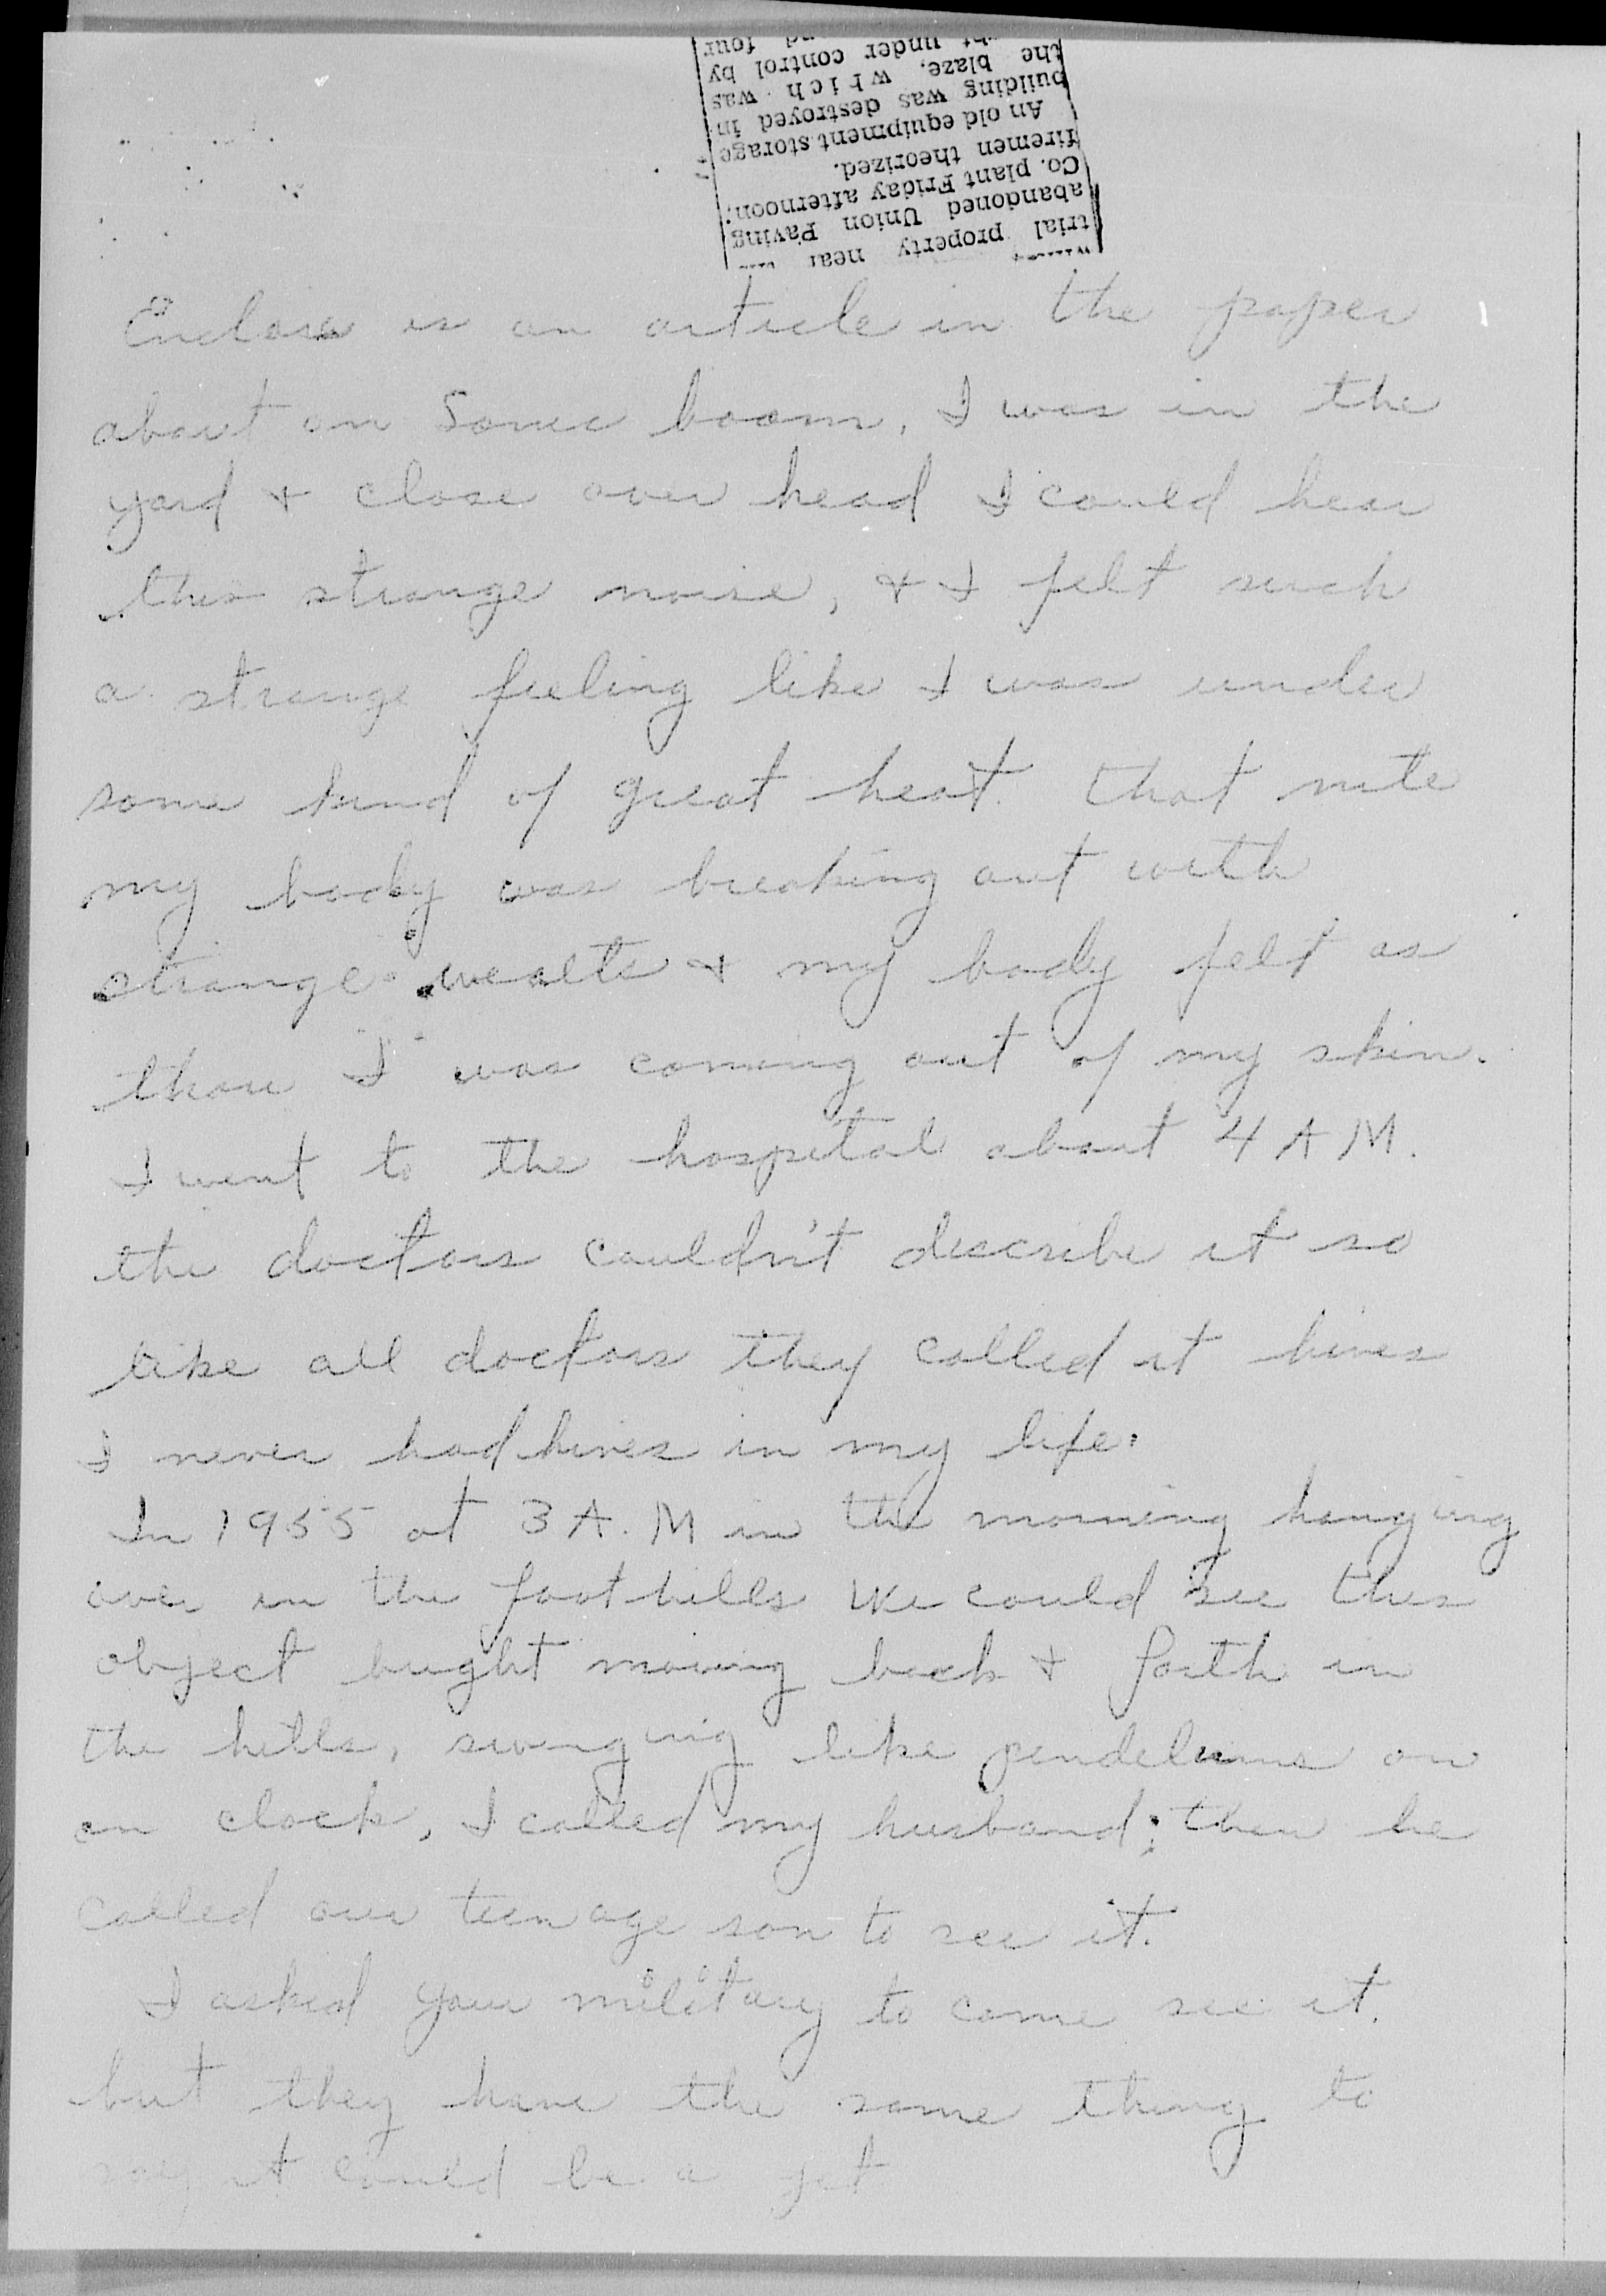 trial property near
abandoned Union Paving
Co. plant Friday afternoon,
firemen theorized.
An old equipment storage
building was destroyed in
the blaze, which was
under control by
four
Enclose is an article in the paper
about an Sonic boom, I was in the
yard & close over head I could hear
this strange noise, & I felt such
a strange feeling like I was under
some kind of great heat. that nite
my body was breaking out with
strange wealts & my body felt as
thou I was coming out of my skin.
I went to the hospital about 4 A M.
the doctors couldn't describe it so
like all doctors they called it hives
I never had hives in my life.
In 1955 at 3 A.M in the morning hanging
over in the foothills we could see this
object bright moving back & forth in
the hills, swinging like pendelums on
an clock, I called my husband; then he
called our teen age son to see it.
I asked your military to come see it.
but they have the same thing to
say it could be a jet